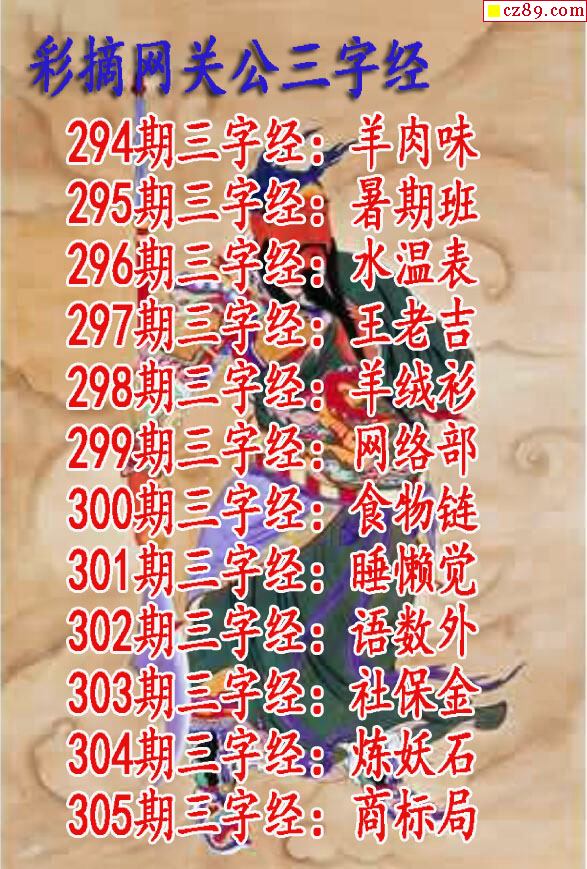 cz89.com
彩摘网关公三字经
294期三字经：羊肉味
295期三字经：暑期班
296期三字经：水温表
297期三字经：王老吉
298期三字经：羊绒衫
299期三字经：网络部
300期三字经：食物链
301期三字经：睡懒觉
302期三字经：语数外
303期三字经：社保金
304期三字经：炼妖石
305期三字经：商标局